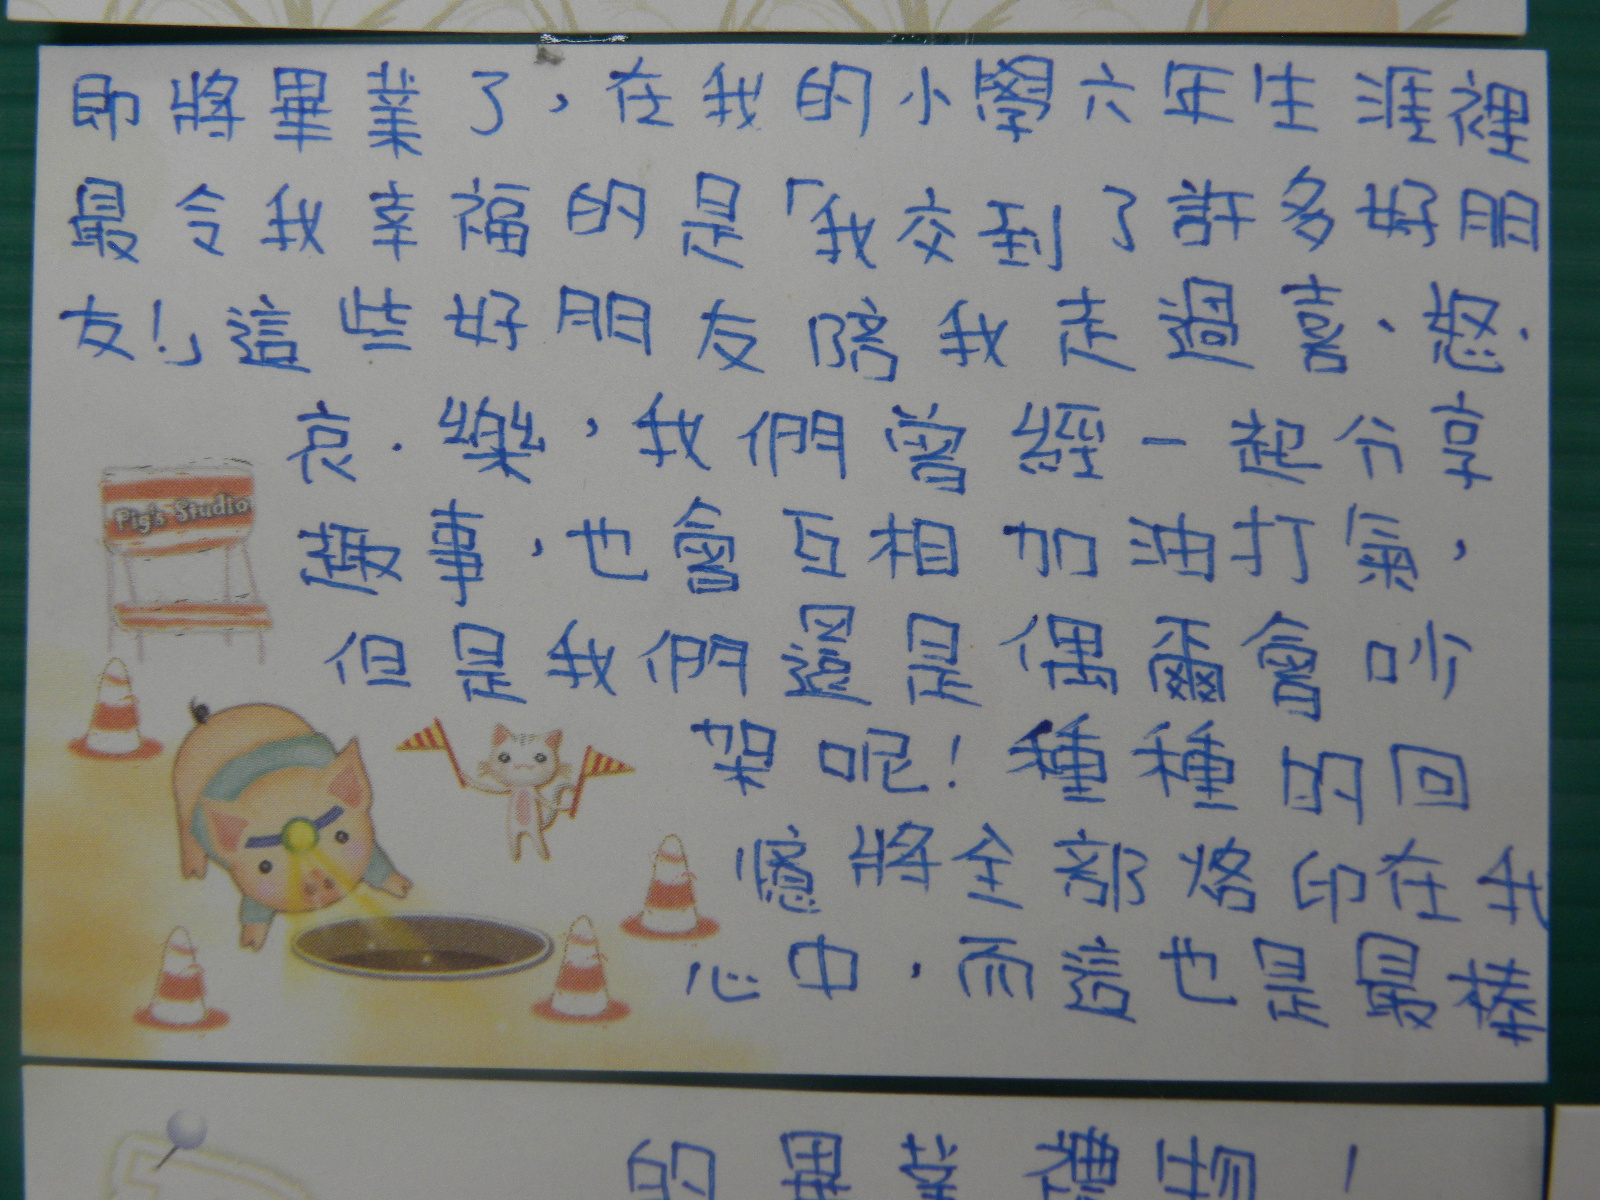 即將畢業了,在我的小學六年生涯裡
最令我幸福的是「我交到了許多好朋
友!」這些好朋友陪我走過喜.怒.
哀.樂,我們曾經一起分享
趣事,也會互相加油打氣,
但是我們還是偶爾會吵
架呢!種種的回
憶將全部烙印在我
心中,而這也是最棒
的畢業禮物!
Pig's Studio